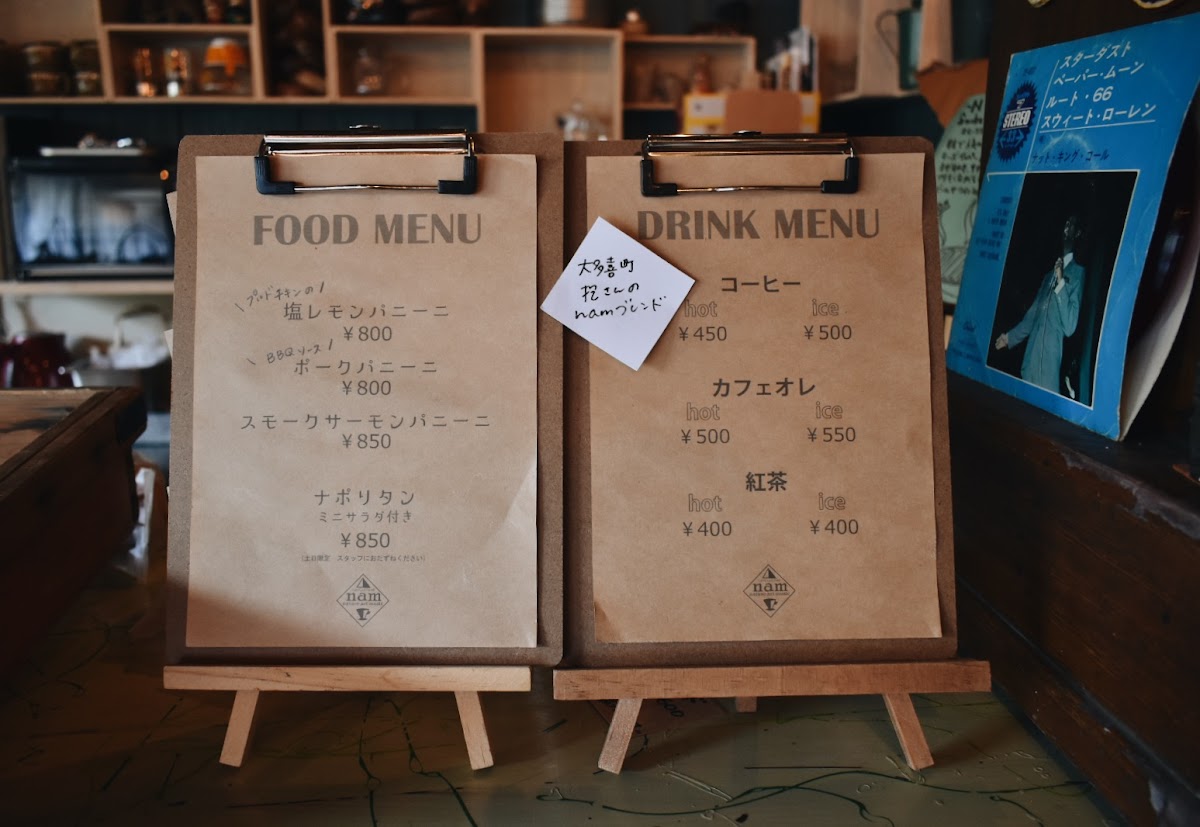 FOOD MENU
プルドチキンの
塩レモンパニーニ
￥800
BBQソース
ポークパニーニ
￥800
スモークサーモンパニーニ
￥850
ナポリタン
ミニサラダ付き
￥850
(土日限定 スタッフにおたずねください)
nam
DRINK MENU
大多喜町
さんの
namブレンド
コーヒー
hot ice
￥450 ￥500
カフェオレ
hot ice
￥500 ￥550
紅茶
hot ice
￥400 ￥400
nam
スターダスト
ペーパー・ムーン
ルート・66
スウィート・ローレン
STEREO
ナット・キング・コール